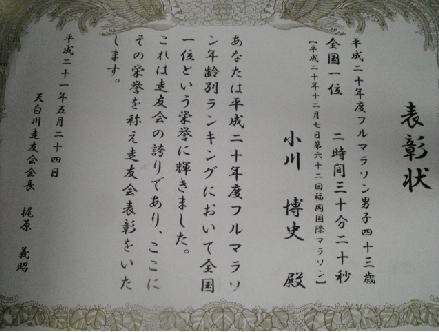 表彰状
平成二十年度フルマラソン男子四十三歳
全国一位　二時間三十分二十秒
【平成二十年十二月七日第六十二回福岡国際マラソン】
小川　博史　殿
あなたは平成二十年度フルマラソ
ン年齢別ランキングにおいて全国
一位という栄誉に輝きました。
これは走友会の誇りであり、ここに
その栄誉を称え走友会表彰をいた
します。
平成二十一年五月二十四日
天白川走友会会長　梶原　義昭